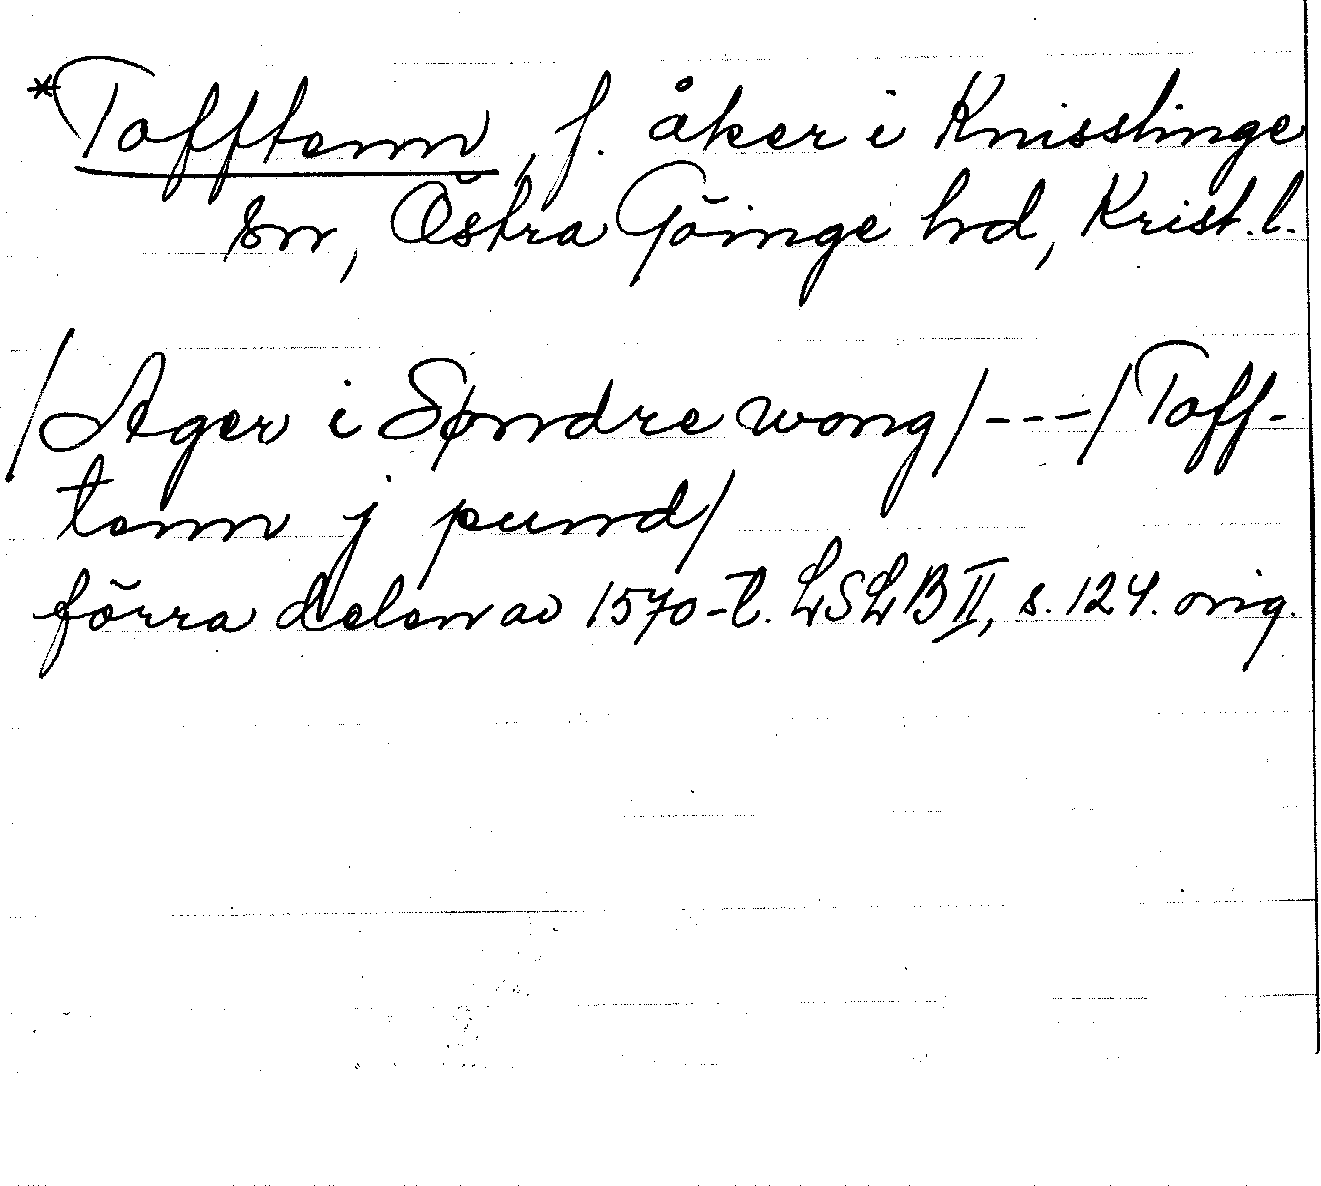 *Tofftenn, f. åker i Knisslinge
sn, Östra Göinge hd, Krist. l.
/Ager i Søndre wong/---/Toff-
tenn j pund/
förra delen av 1570-t. LSLB II, s. 124. orig.